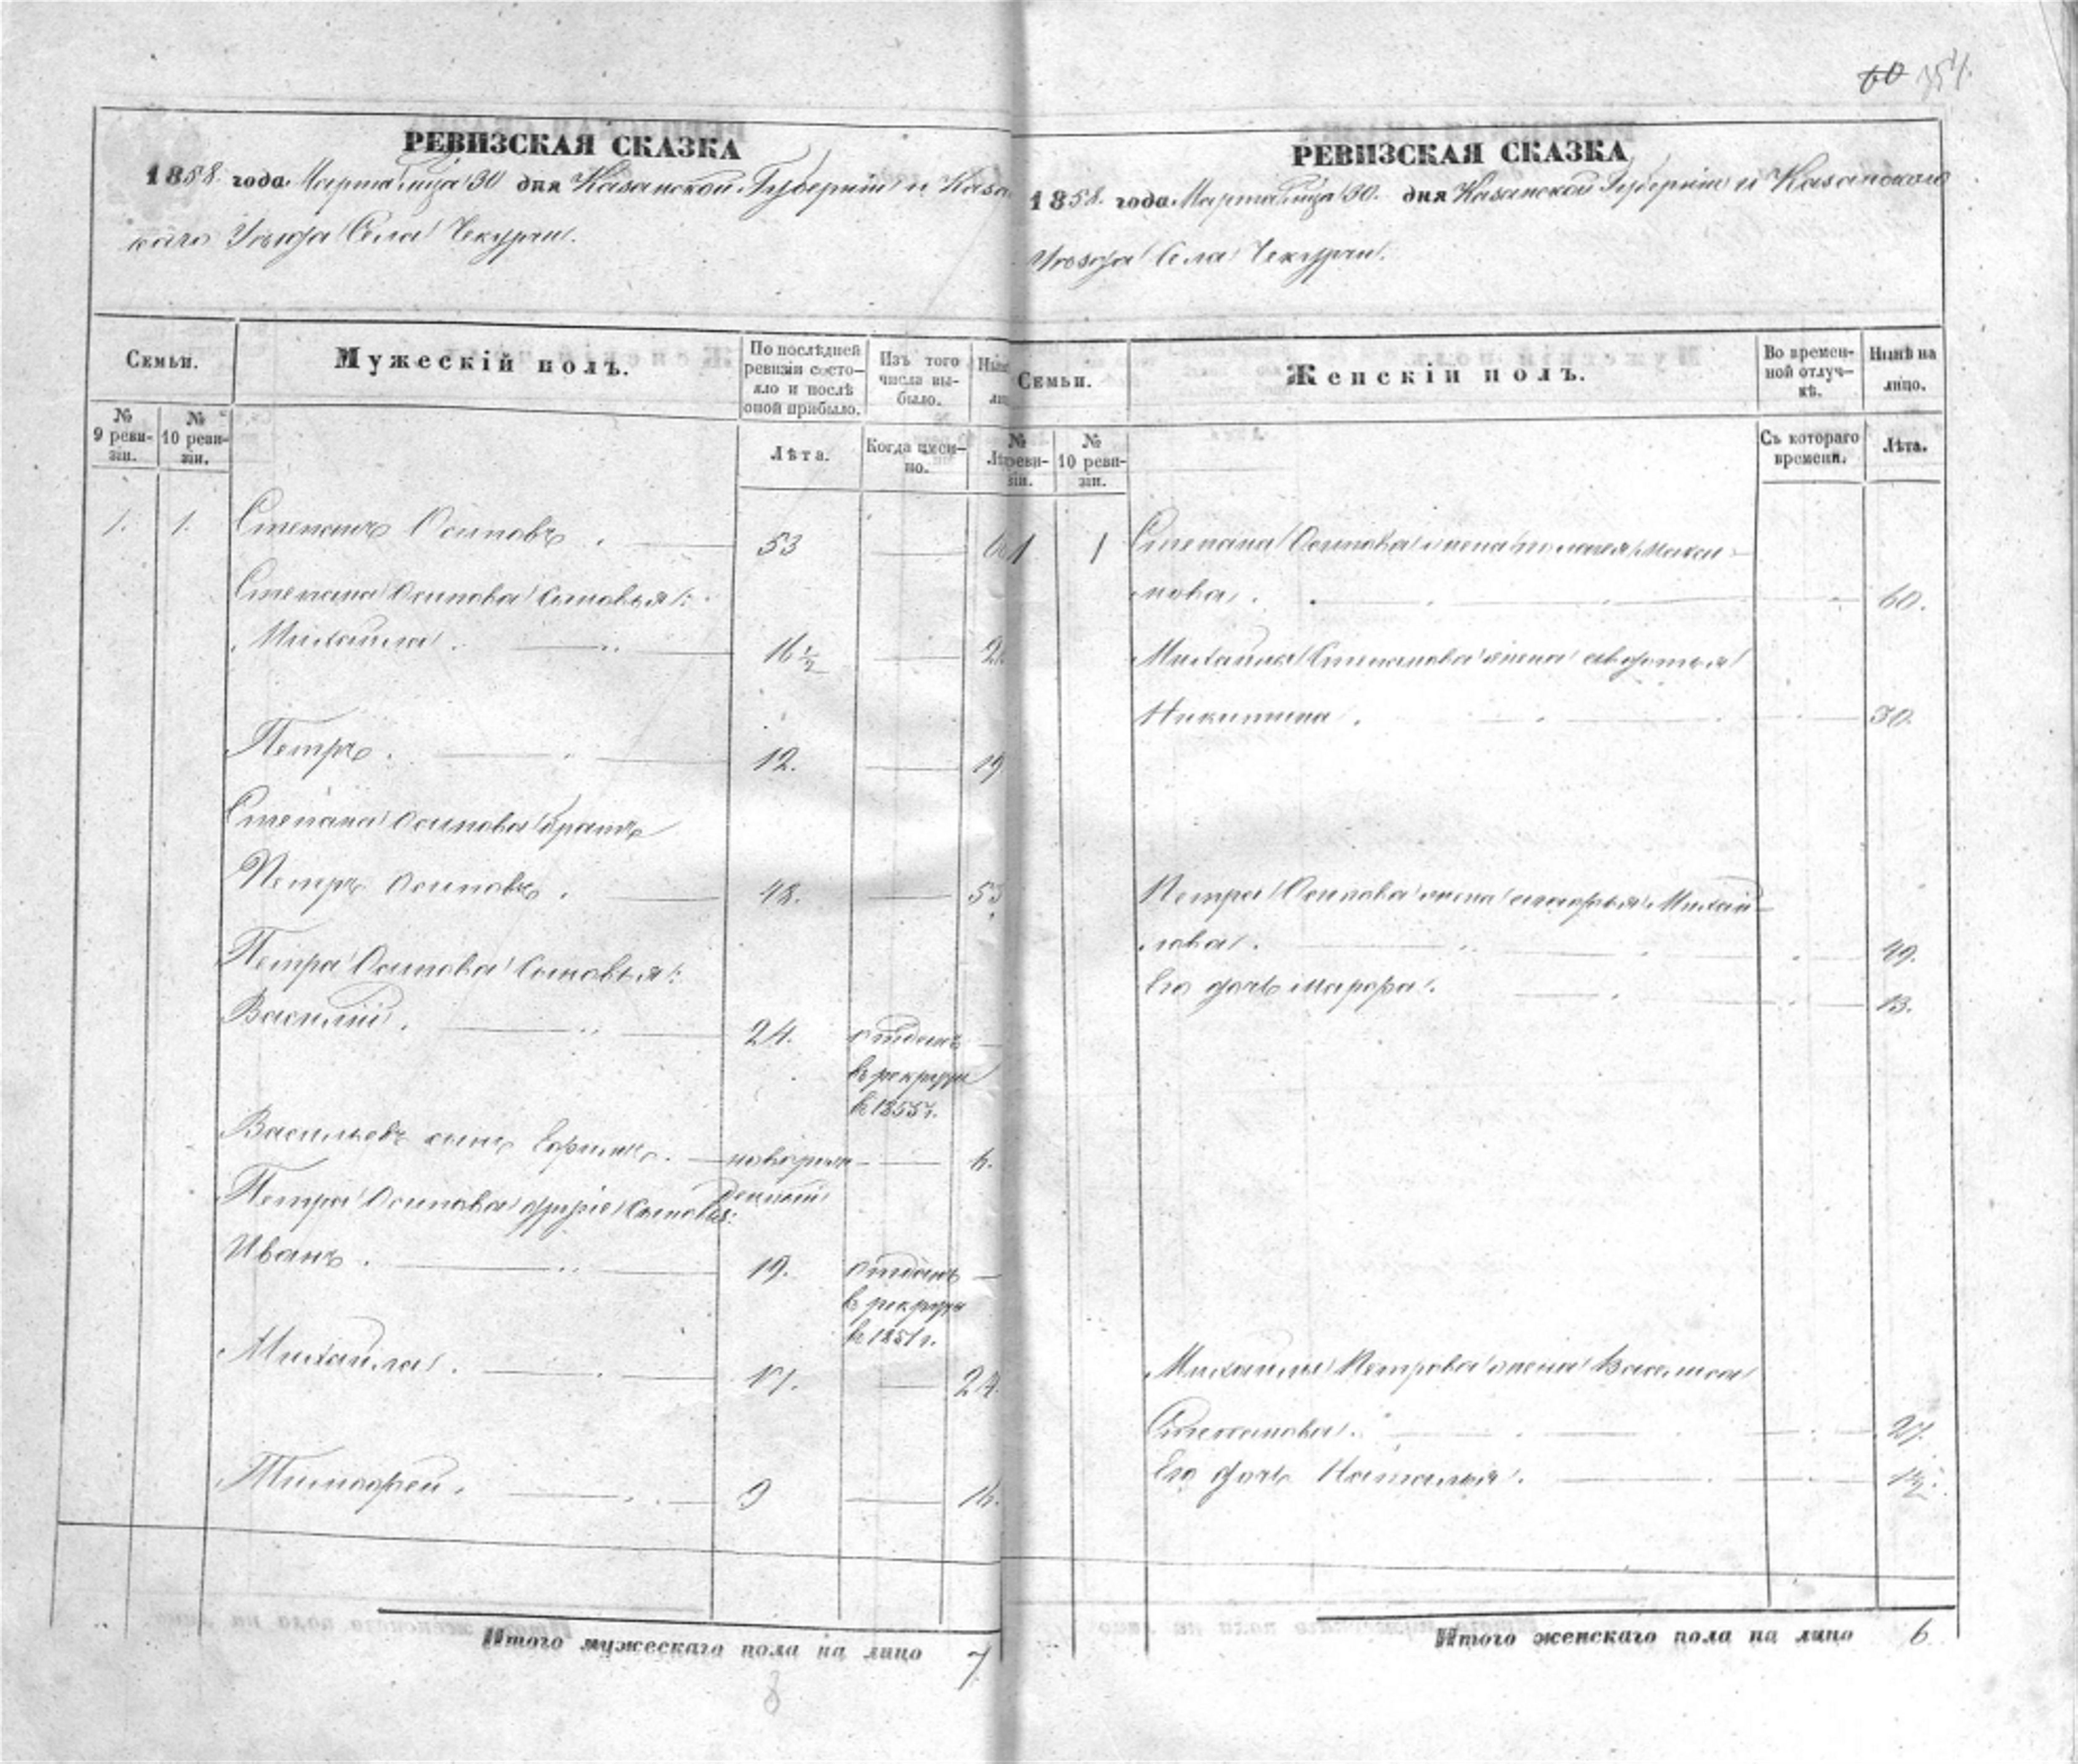 60 354.
РЕВИЗСКАЯ СКАЗКА
1858. года Марта мца 30 дня Казанской Губернии и Казан
скаго Уѣзда Села Чекурчи.
Семьи.
Мужескій полъ.
По послѣдней ревизіи состояло и послѣ оной прибыло.
Изъ того числа выбыло.
№ 9 ревизіи.
№ 10 ревизіи.
Лѣта.
Когда имянно.
1. 1. Степанъ Осиповъ. 53
Степана Осипова сыновья:
Михайла. 16 1/2
Петръ. 12. 19
Степана Осипова братъ
Петръ Осиповъ. 48. 55
Петра Осипова сыновья:
Василій. 24. отданъ
в рекруты
в 1855 г.
Васильевъ сынъ Ефимъ. новорож- 6.
денный
Петра Осипова другіе сыновья:
Иванъ. 19. отданъ
в рекруты
в 1851 г.
Михайла. 17. 24.
Тимофей. 9 16.
Итого мужескаго пола на лицо 7
8
РЕВИЗСКАЯ СКАЗКА
1858. года Марта мца 30. дня Казанской Губернии и Казанскаго
Уѣзда Села Чекурчи.
Семьи.
Женскій полъ.
Во временной отлучкѣ.
Нынѣ на лицо.
№ ревизіи.
№ 10 ревизіи.
Съ котораго времени.
Лѣта.
1 1 Степана Осипова жена
мова. 60.
Михайла Степанова жена Авдотья
Никитина. 30.
Петра Осипова жена Михай-
лова. 49.
Его дочь Марфа. 13.
Михайлы Петрова жена Василиса
Степанова. 27.
Его дочь Наталья. 1 1/2.
Итого женскаго пола на лицо 6